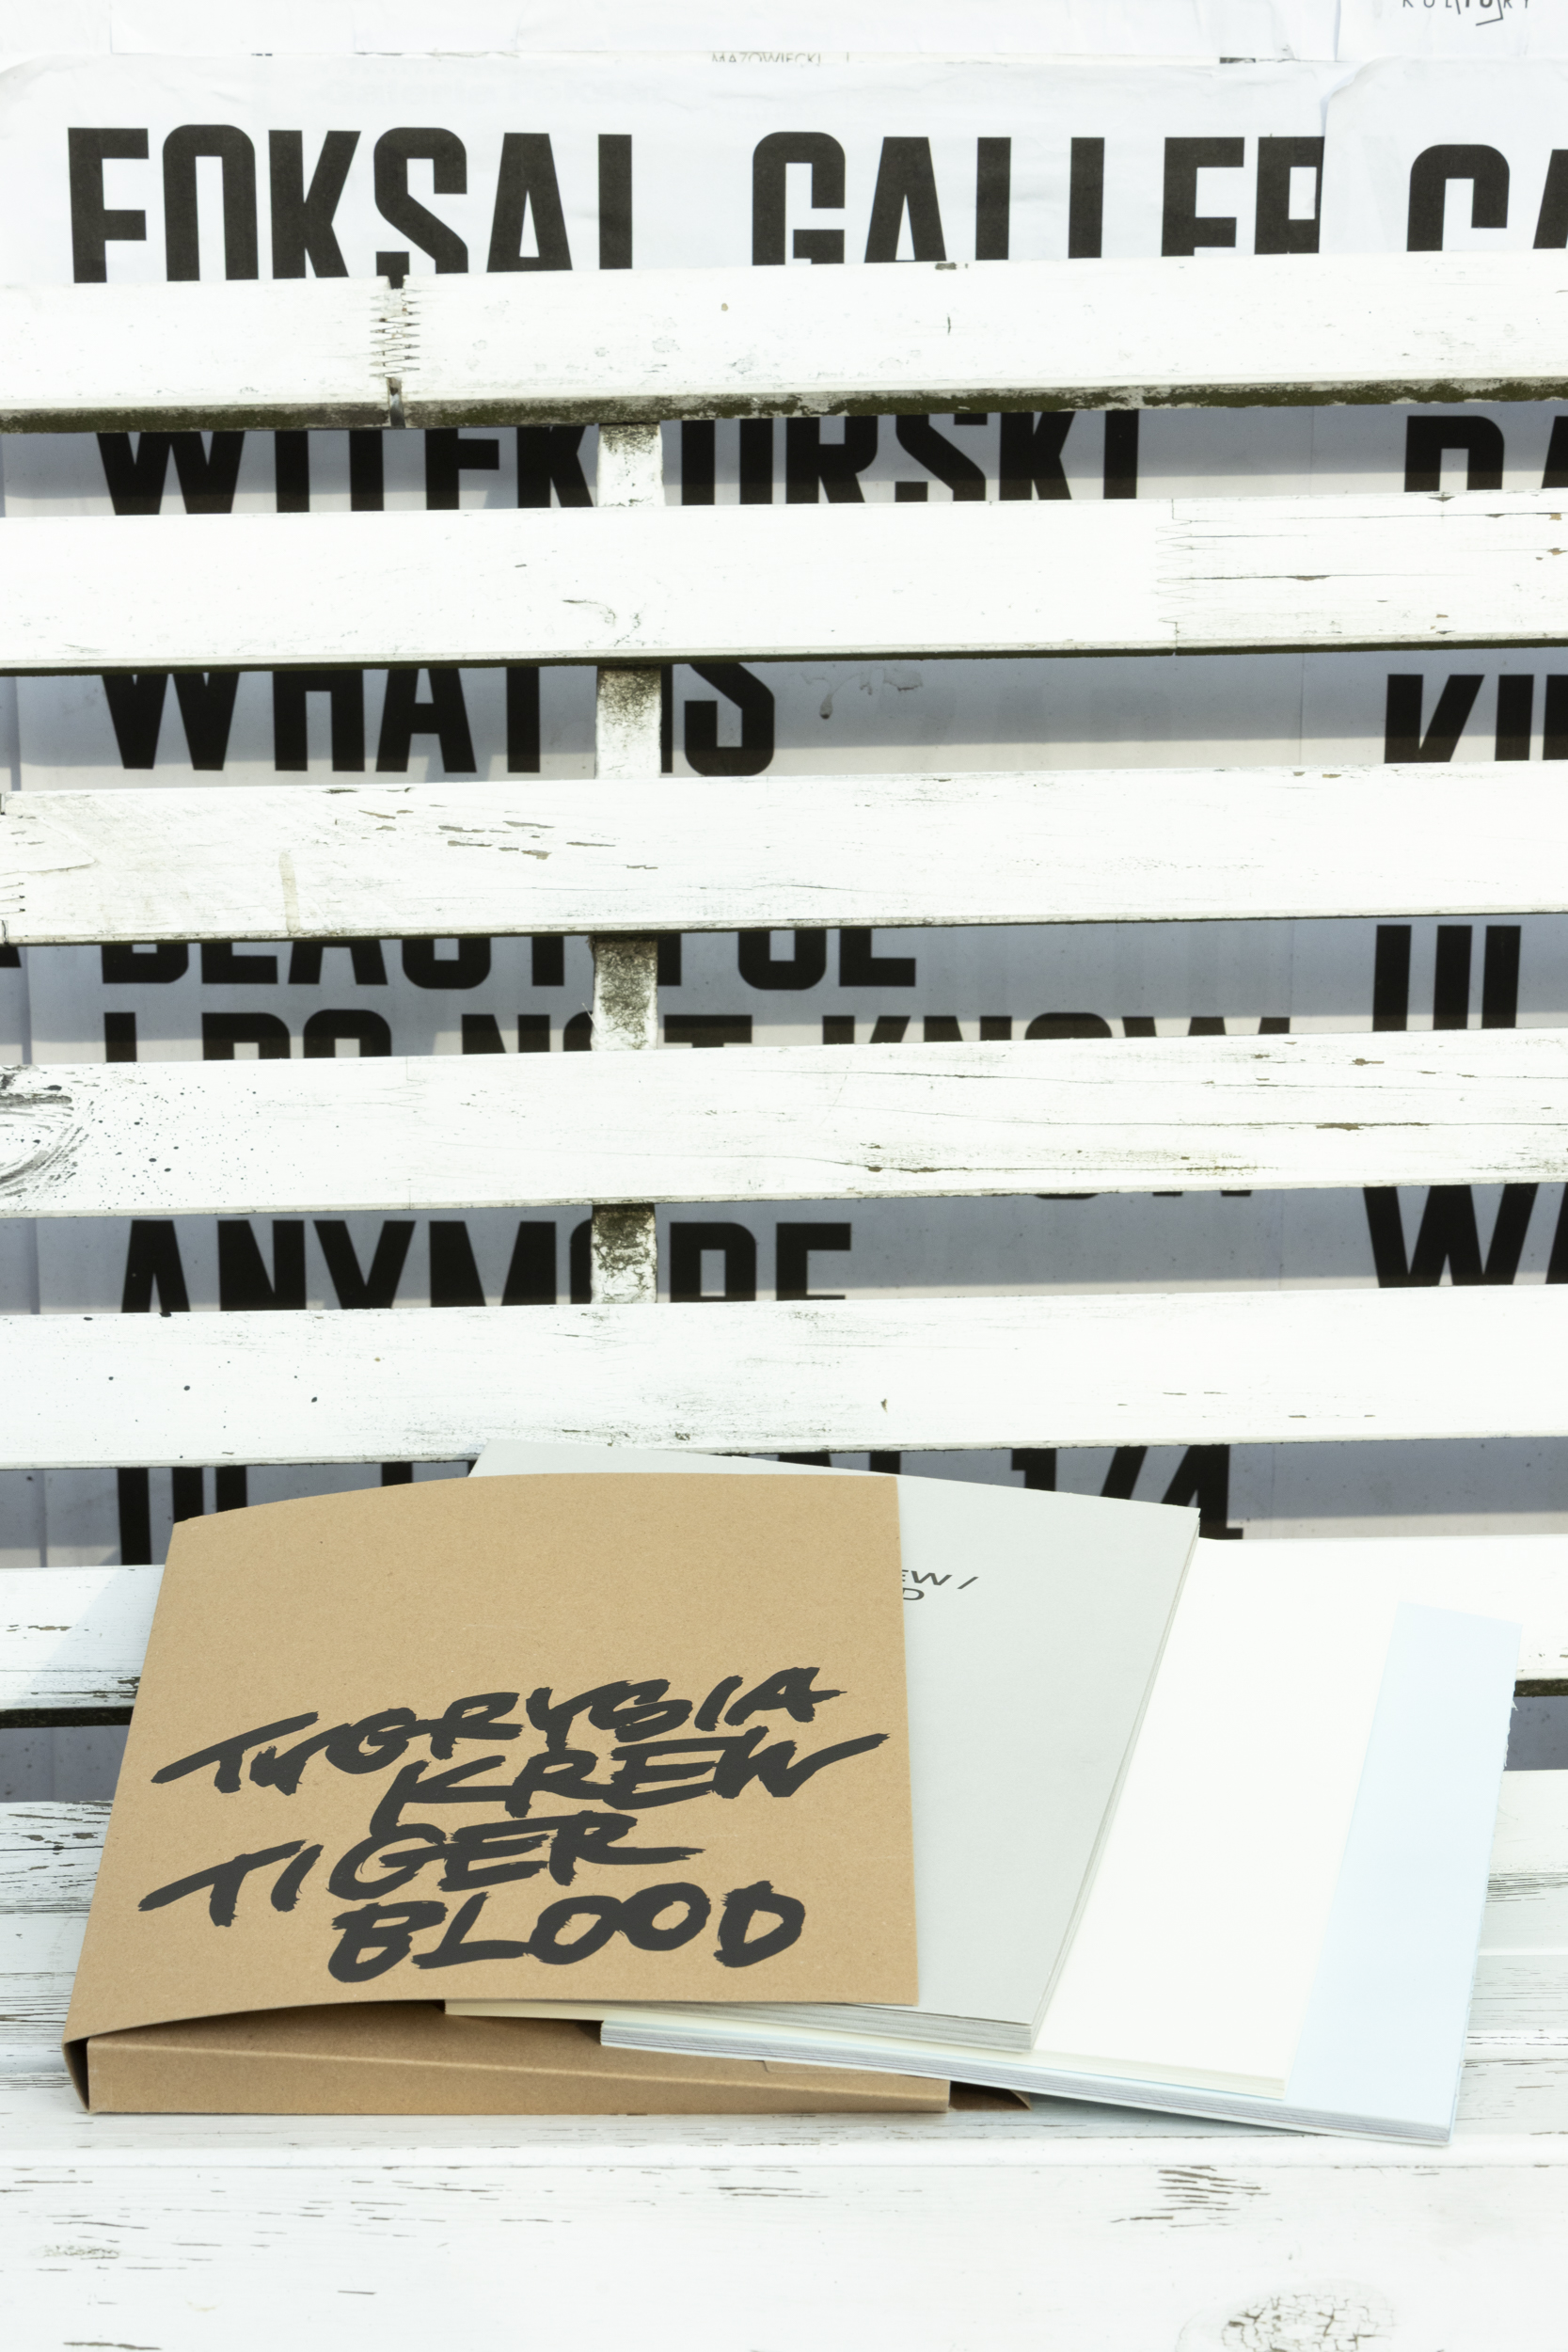 KULTURY
MAZOWIECKI
FOKSAL GALLER
WITEK ORSKI
WHAT IS
BEAUTIFUL
I DO NOT KNOW
ANYMORE
1/4
EW /
D
TYGRYSIA
KREW
TIGER
BLOOD